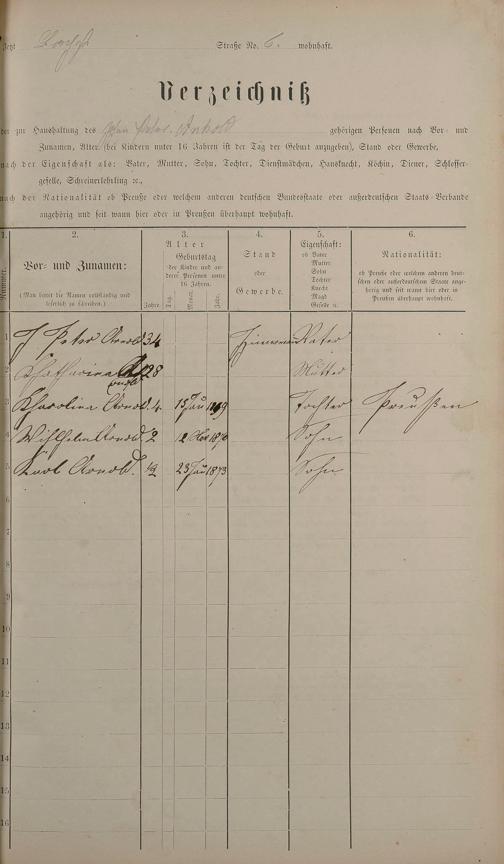 Jetzt Straße No. 6. wohnhaft.
Verzeichniß
der zur Haushaltung des Peter Arnold gehörigen Personen nach Vor- und
Zunamen, Alter (bei Kindern unter 16 Jahren ist der Tag der Geburt anzugeben), Stand oder Gewerbe,
nach der Eigenschaft als: Vater, Mutter, Sohn, Tochter, Dienstmädchen, Hausknecht, Köchin, Diener, Schlosser-
geselle, Schreinerlehrling ꝛc.,
nach der Nationalität ob Preuße oder welchem anderen deutschen Bundesstaate oder außerdeutschen Staats-Verbande
angehörig und seit wann hier oder in Preußen überhaupt wohnhaft.
1. 2. 3. 4. 5. 6.
Nummer.
Vor- und Zunamen:
(Man bittet die Namen vollständig und
leserlich zu schreiben.)
Alter
Geburtstag
der Kinder und an-
derer Personen unter
16 Jahren.
Jahre. Tag. Monat. Jahr.
Stand
oder
Gewerbe.
Eigenschaft:
ob Vater
Mutter
Sohn
Tochter
Knecht
Magd
Geselle u.
Nationalität:
ob Preuße oder welchem anderen deut-
schen oder außerdeutschen Staate ange-
hörig und seit wann hier oder in
Preußen überhaupt wohnhaft.
1 J Peter Arnold 34 Vater
2 Katharina Arnold 28 Mutter
3 Karolina Arnold. 4. 15 Tochter Preußen
4 Wilhelm Arnold 2 12 Sohn
5 Karl Arnold. ½ 23 1873 Sohn
6
7
8
9
10
11
12
13
14
15
16